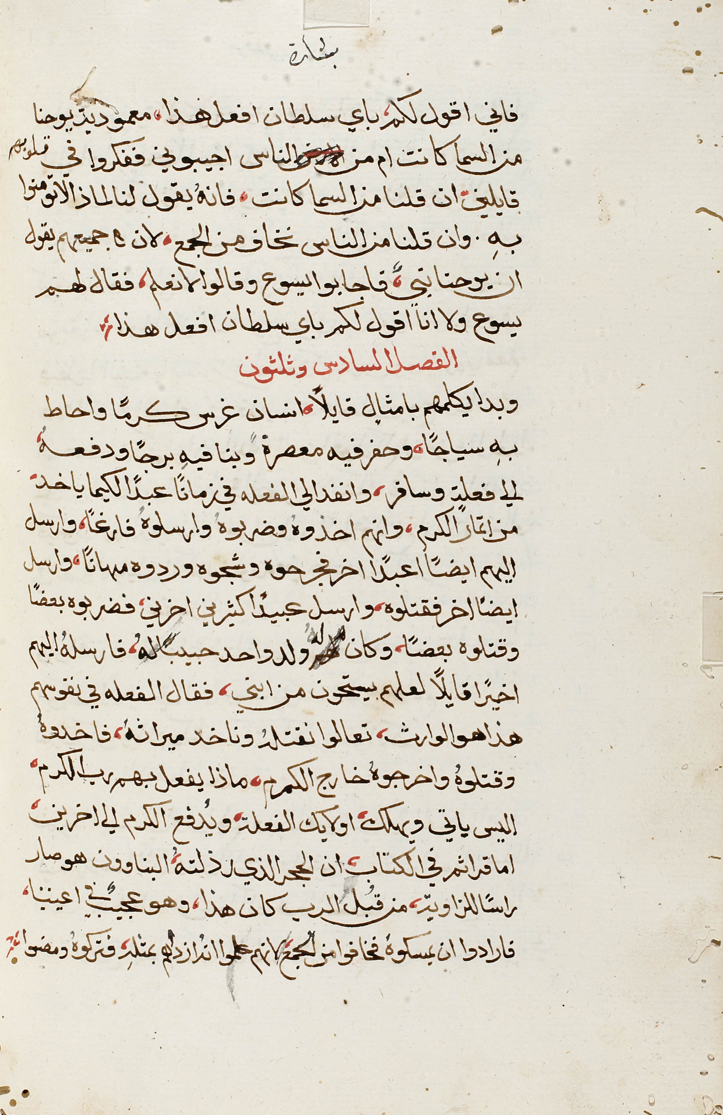 بشارة
فاني اقول لكم باي سلطان افعل هذا، معمودية يوحنا
من السما كانت ام من الناس اجيبوني ففكروا في قلوبهم
قايلين ان قلنا من السما كانت، فانه يقول لنا لماذا لا تومنوا
به. وان قلنا من الناس نخاف من الجمع، لان جميعهم يقول
ان يوحنا نبي، فاجابوا ليسوع وقالوا لا نعلم، فقال لهم
يسوع ولا اناً اقول لكم باي سلطان افعل هذا،
الفصل السادس وثلثون
وبدا يكلمهم بامثالٍ قايلاً، انسان غرس كرمًا واحاط
به سياجًا، وحفر فيه معصرة وبنا فيه برجًا ودفعه
الى فعلةٍ وسافر، وانفد الى الفعله في زمانًا عبدًا لكيما ياخد
من اثمار الكرم، وانهم اخدوه وضربوه وارسلوهُ فارغًا، وارسل
اليهم ايضًا عبدًا اخر فجرحوه وشجوه وردوه مهانًا، وارسل
ايضًا اخر فقتلوه، وارسل عبيدًا كثيرين اخرين، فضربوه بعضًا
وقتلوه بعضًا، وكان له ولد واحد حبيبًا له، فارسلهُ اليهم
اخيرًا قايلاً لعلهم يستحون من ابني، فقال الفعله في نفوسهم
هذا هو الوارث، تعالوا نقتله وناخد ميراثه، فاخدوهُ
وقتلوهُ واخرجوهُ خارج الكرم، ماذا يفعل بهم رب الكرم
اليس ياتي ويهلك، اولايك الفعلة، ويُدفع الكرم الى اخرين،
اما قراتم في الكتاب، ان الحجر الذي رذلته البناوون هو صار
راسًا للزاوية، من قبُل الرب كان هذا، وهو عجيبٌ في اعيننا،
فارادوا ان يمسكوهُ فخافوا من الجمع لانهم علموا انه ارادهم بمثله، فتركوهُ ومضوا